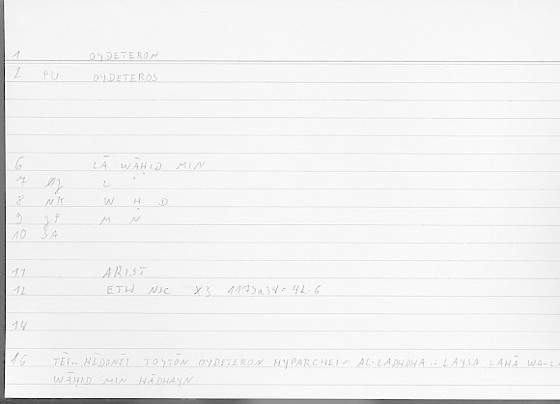 1 OYDETERON
2 PU OYDETEROS
6 LĀ WĀḤID MIN
7 L '
8 NK W Ḥ D
9 M N
10 SA
11 ARIST
12 ETH NIC X3 1173a34 = 42-6
14
16 HĒDONĒI TOYTŌN OYDETERON HYPARCHEI ~ AL-LADHDHA .. LAYSA LAHĀ WA-L
WĀḤID MIN HĀDHAYN